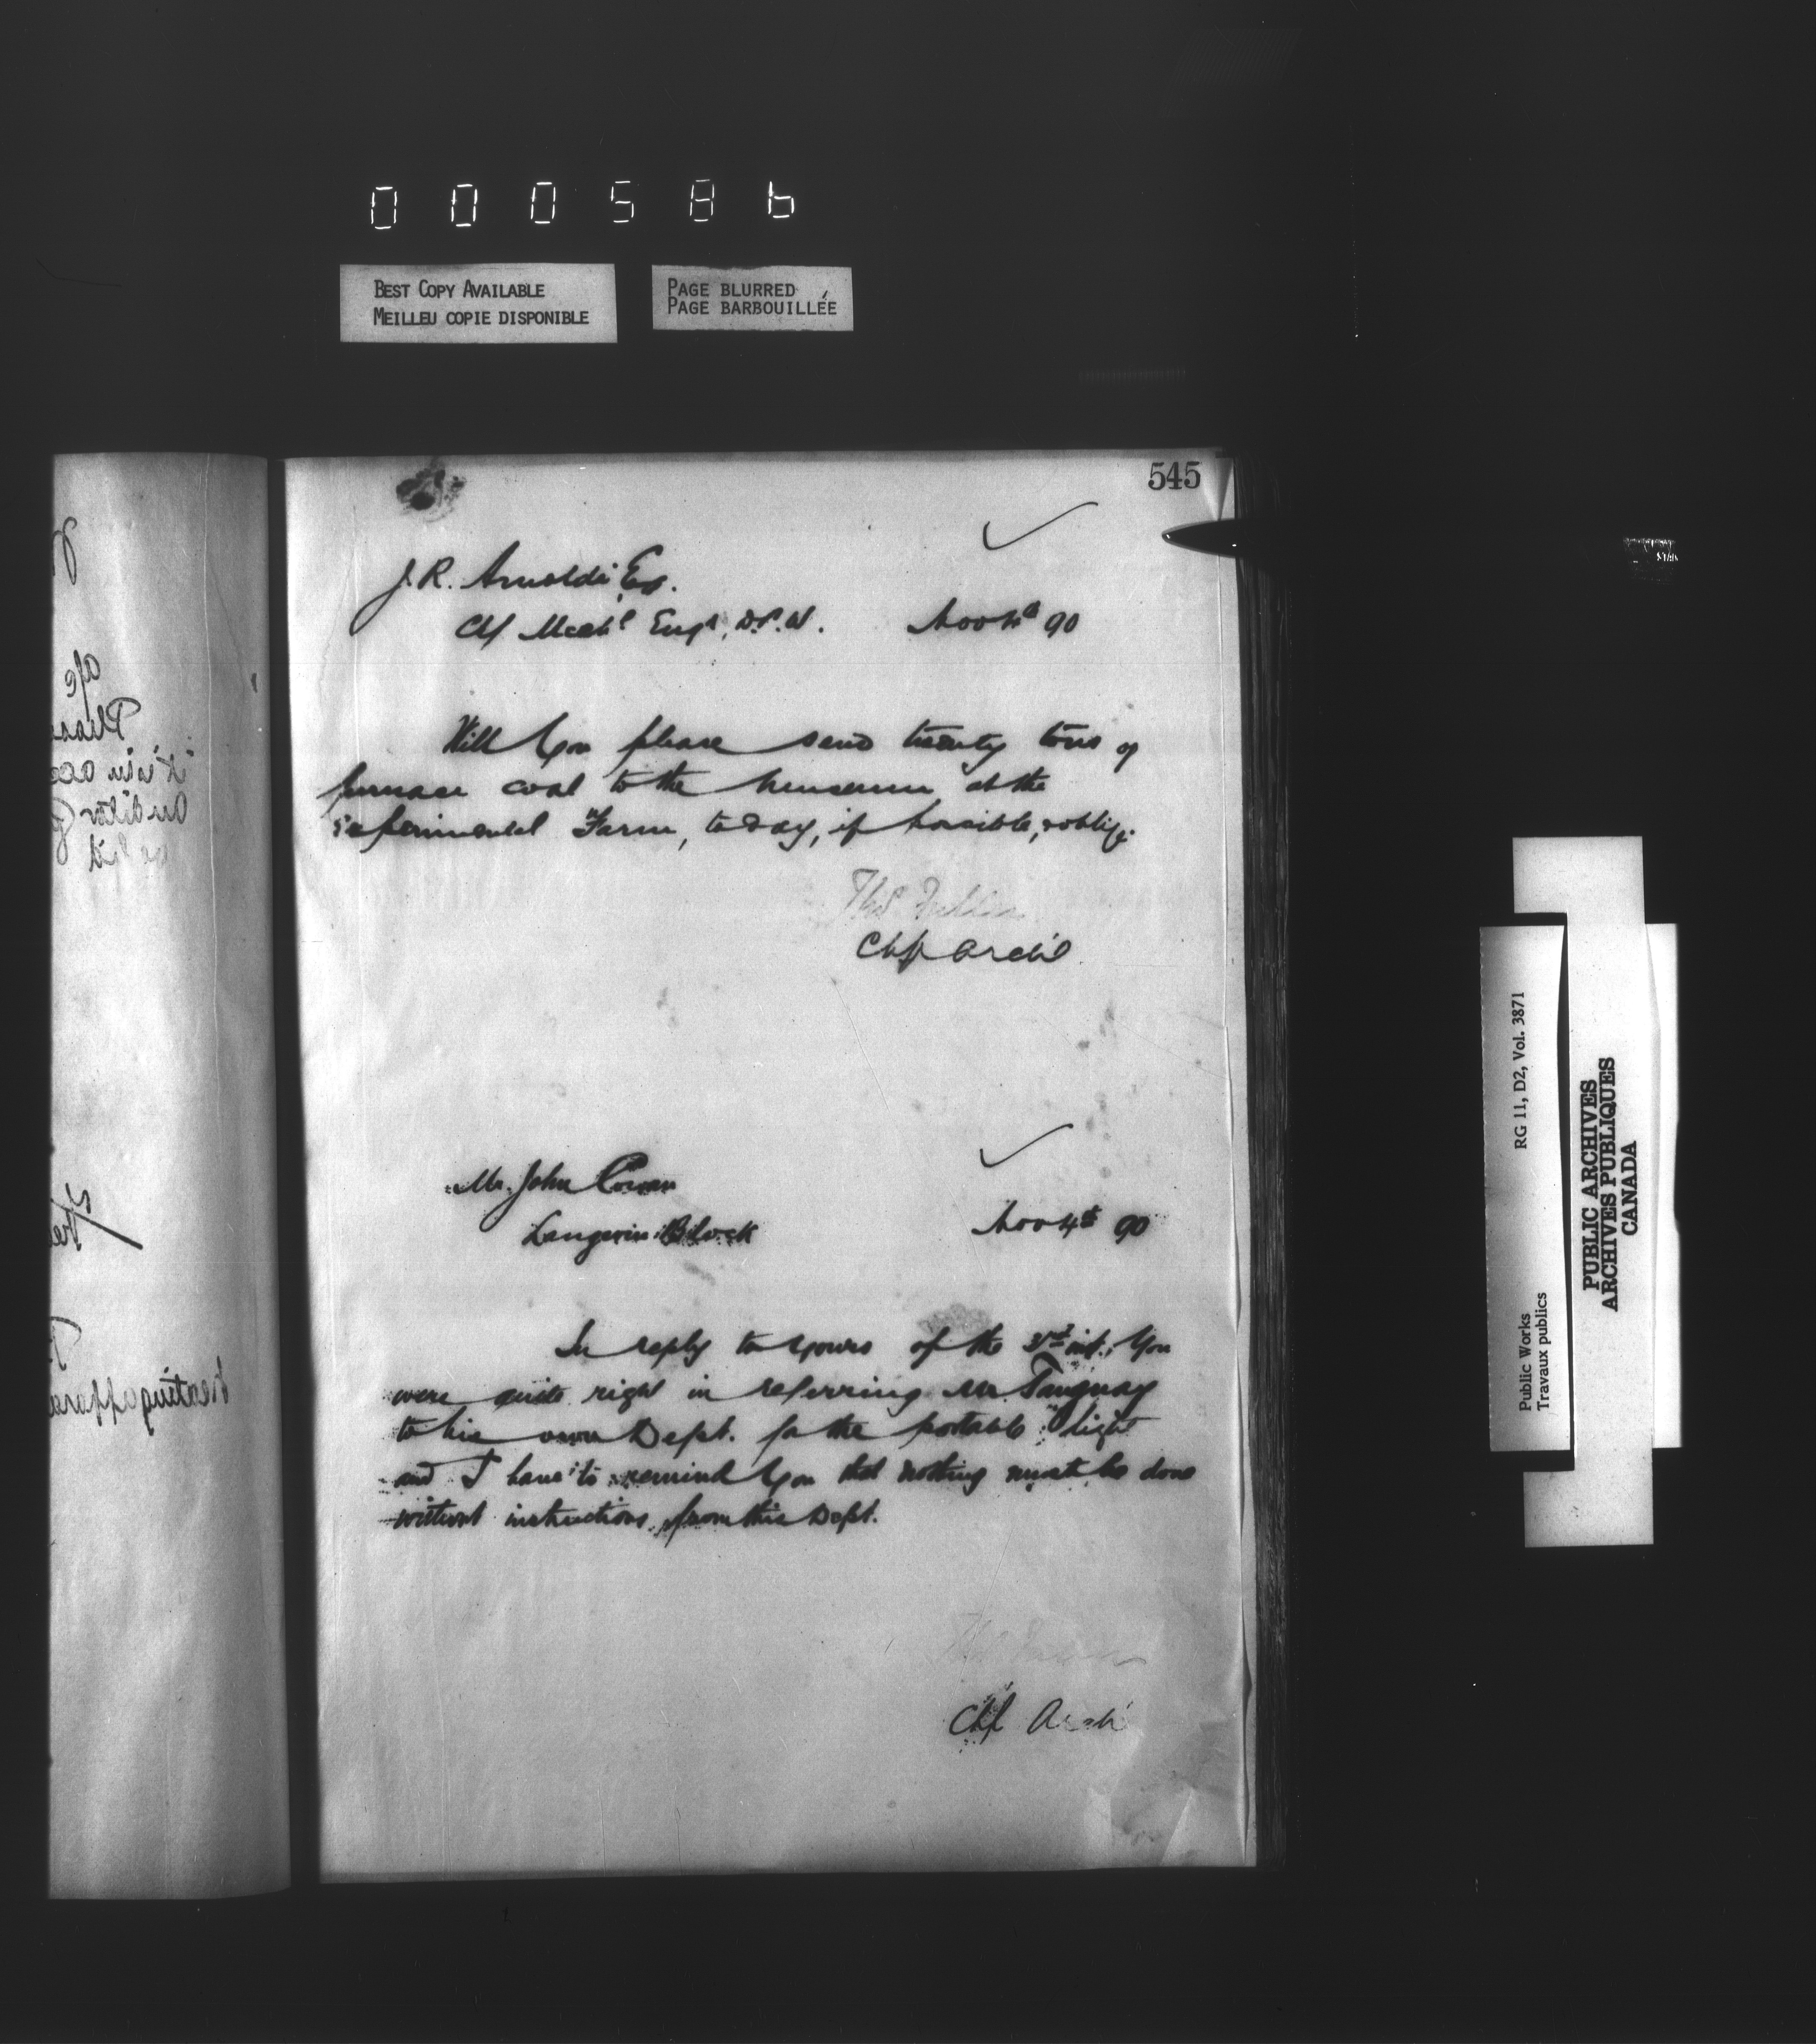 000586
BEST COPY AVAILABLE
MEILLEU COPIE DISPONIBLE
PAGE BLURRED
PAGE BARBOUILLÉE
545
J. R. Arnoldi Esq.
Chf Mechl Engr, D.P.W. Nov 4th 90
Will you please send twenty tons of
furnace coal to the museum at the
Experimental Farm, today, if possible, & oblige.
Thos Fuller
Chf Archt
Mr. John Cowan
Langevin Block Nov 4th 90
In reply to yours of the 3rd inst. you
were quite right in referring Mr Tanguay
to his own Dept. for the portable light
and I have to remind you that nothing must be done
without instructions from this Dept.
Thos Fuller
Chf Archt
a/c
Please
it in acc
Auditor G
heating appara
RG 11, D2, Vol. 3871
Public Works
Travaux publics
PUBLIC ARCHIVES
ARCHIVES PUBLIQUES
CANADA